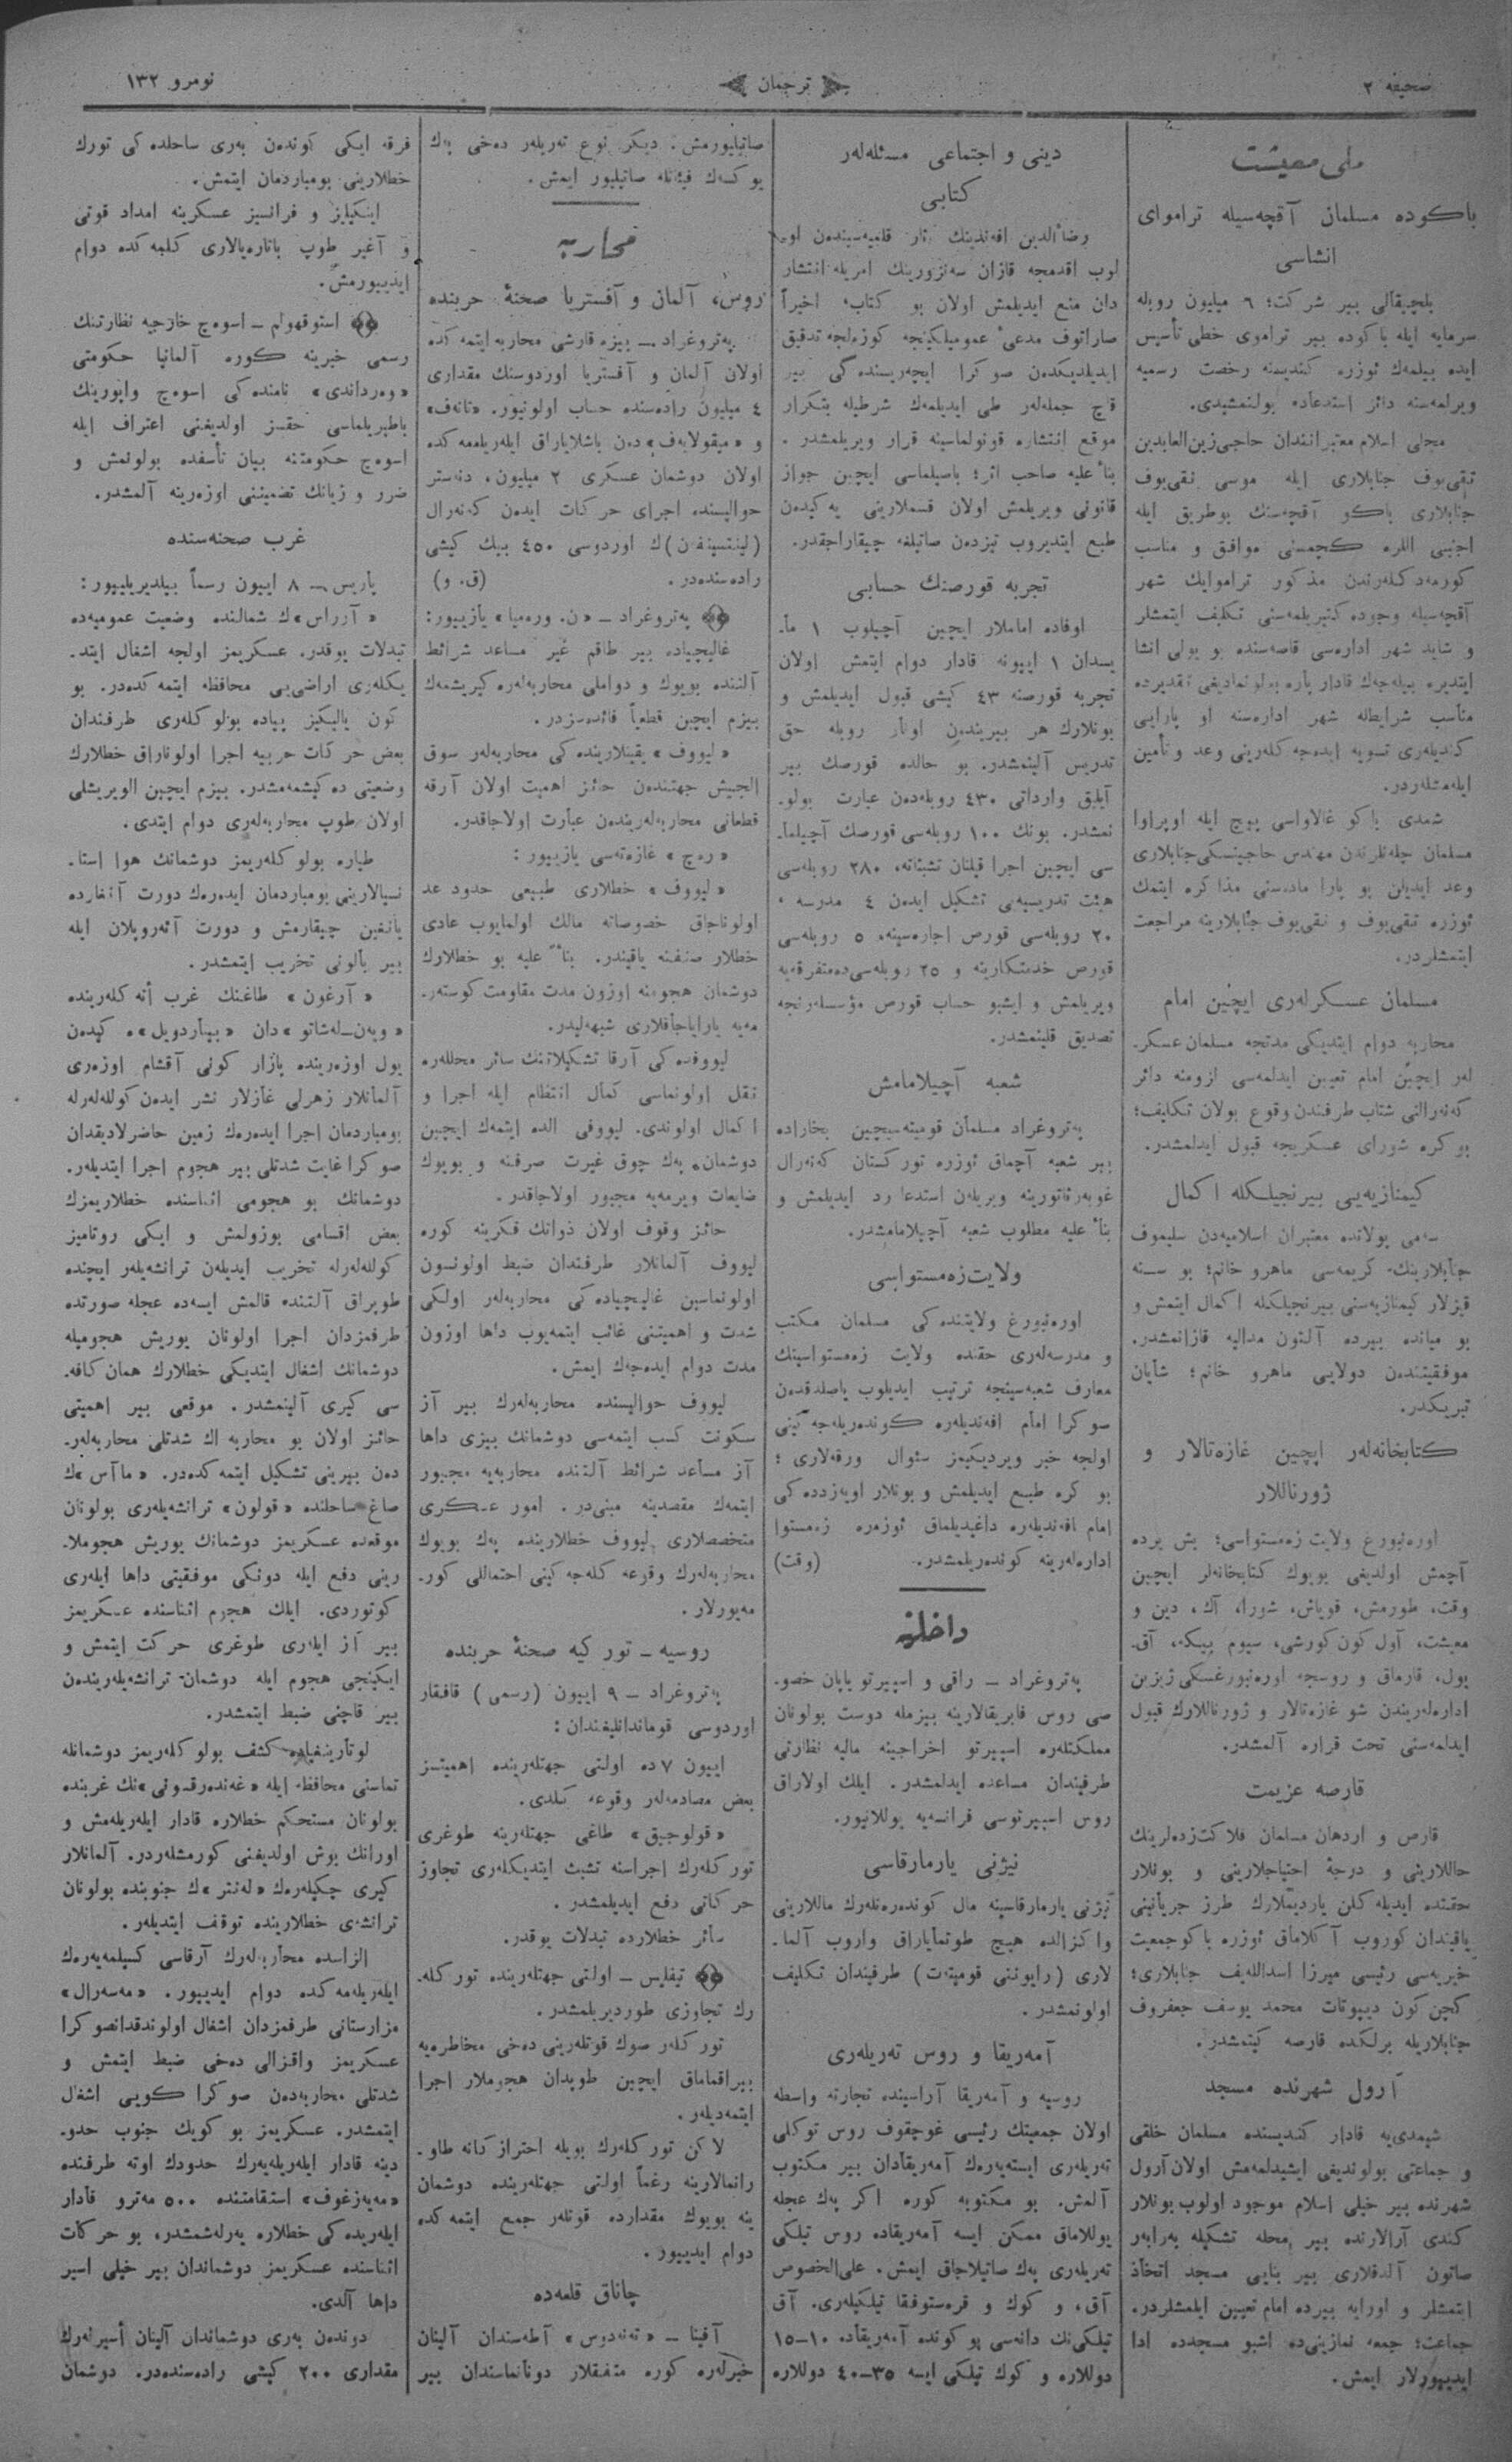 صحیفه ٢
ترجمان
نومرو ١٣٢
ملی معیشت
باكوده مسلمان آقچه‌سیله تراموای
انشاسی
بلچیقالی بیر شركت؛ ٦ میلیون روبله
سرمایه ایله باكوده بیر تراموی خطی تأسیس
ایده بیلمه‌ك ئوزره كندیسنه رخصت رسمیه
ویرلمه‌سنه دائر استدعاده بولنمشیدی.
محلی اسلام معتبرانندان حاجی زین‌العابدین
تقی‌یوف جنابلاری ایله موسی نقی‌یوف
جنابلاری باكو آقچه‌سنك بوطریق ایله
اجنبی اللره كچمسنی موافق و مناسب
كورمه‌دكلرندن مذكور تراموایك شهر
آقچه‌سیله وجوده كتیریلمه‌سنی تكلیف ایتمشلر
و شاید شهر اداره‌سی قاصه‌سنده بو یولی انشا
ایتدیره بیله‌جك قادار پاره بولونمادیغی تقدیرده
مناسب شرایطله شهر اداره‌سنه او پارایی
كندیلری تسویه ایده‌جه‌كلرینی وعد و تأمین
ایله‌مشله‌ردر.
شمدی باكو غالاواسی بیچ ایله اوپراوا
مسلمان چله‌نلرندن مهندس حاجینسكی جنابلاری
وعد ایدیلن بو پارا ماده‌سنی مذاكره ایتمك
ئوزره تقی‌یوف و نقی‌یوف جنابلارینه مراجعت
ایتمشلردر.
مسلمان عسكرله‌ری ایچین امام
محاربه دوام ایتدیكی مدتجه مسلمان عسكر-
له‌ر ایچین امام تعیین ایدلمه‌سی لزومنه دائر
كه‌نه‌رالنی شتاب طرفندن وقوع بولان تكلیف؛
بو كره شورای عسكریجه قبول ایدلمشدر.
كیمنازیه‌یی بیرنجیلكله اكمال
سه‌می پولانده معتبران اسلامیه‌دن سلیموف
جنابلارینك كریمه‌سی ماهرو خانم؛ بو سنه
قیزلار كیمنازیه‌سنی بیرنجیلكله اكمال ایتمش و
بو میانده بیرده آلتون مدالیه قازانمشدر.
موفقیتندن دولایی ماهرو خانم؛ شایان
تبریكدر.
كتابخانه‌لر ایچین غازه‌تالار و
ژورناللار
اوره‌نبورغ ولایت زه‌مستواسی؛ بش یرده
آچمش اولدیغی بویوك كتابخانه‌لر ایچین
وقت، طورمش، قویاش، شورا، آك، دین و
معیشت، آول كون كورشی، سیوم بیكه، آق-
یول، قارماق و روسجه اوره‌نبورغسكی ژیزین
اداره‌لریندن شو غازه‌تالار و ژورناللارك قبول
ایدلمه‌سنی تحت قراره آلمشدر.
قارصه عزیمت
قارص و اردهان مسلمان فلاكت‌زده‌لرینك
حاللارینی و درجهٔ احتیاجلارینی و بونلار
حقنده ایدیله كلن یاردیملارك طرز جریانینی
یاقیندان كوروب آكلاماق ئوزره باكو جمعیت
خیریه‌سی رئیسی میرزا اسداللەیف جنابلاری؛
كچن كون دیپوتات محمد یوسف جعفروف
جنابلاریله برلكده قارصه كیتمشدر.
آرول شهرنده مسجد
شیمدی‌یه قادار كندیسنده مسلمان خلقی
و جماعتی بولوندیغی ایشیدلمه‌مش اولان آرول
شهرنده بیر خیلی اسلام موجود اولوب بونلار
كندی آرالارنده بیر محله تشكیله به‌رابه‌ر
صاتون آلدقلاری بیر بنایی مسجد اتخاذ
ایتمشلر و اورایه بیرده امام تعیین ایلمشلردر.
جماعت؛ جمعه نمازینی‌ده اشبو مسجدده ادا
ایدییورلار ایمش.
دینی و اجتماعی مسئله‌له‌ر
كتابی
رضاءالدین افندینك آثار قلمیه‌سیندن او-
لوب اقدمجه قازان سه‌نزورینك امریله انتشار
دان منع ایدیلمش اولان بو كتاب، اخیراً
صاراتوف مدعئ عمومیلكینجه كوزه‌لجه تدقیق
ایدیلدیكدن صوكرا ایچه‌ریسنده‌كی بیر
قاچ جمله‌لر طی ایدیلمه‌ك شرطیله بتكرار
موقع انتشاره قونولماسینه قرار ویریلمشدر.
بناءً علیه صاحب اثر؛ باصیلماسی ایچین جواز
قانونی ویریلمش اولان قسملارینی یه‌كیدن
طبع ایتدیروب تیزدن صاتیلغه چیقاراجقدر.
تجربه قورصنك حسابی
اوفاده اماملار ایچین آچیلوب ١ ما-
یسدان ١ ایپونه قادار دوام ایتمش اولان
تجربه قورصنه ٤٣ كیشی قبول ایدیلمش و
بونلارك هر بیریندن اونار روبله حق
تدریس آلینمشدر. بو حالده قورصك بیر
آیلیق وارداتی ٤٣٠ روبله‌دن عبارت بولو-
نمشدر. بونك ١٠٠ روبله‌سی قورصك آچیلما-
سی ایچین اجرا قیلنان تشبثاته، ٢٨٠ روبله‌سی
هیئت تدریسیه‌یی تشكیل ایدن ٤ مدرسه،
٢٠ روبله‌سی قورص اجاره‌سینه، ٥ روبله‌سی
قورص خدمتكارینه و ٢٥ روبله‌سی‌ده متفرقه‌یه
ویریلمش و ایشبو حساب قورص مؤسسلرنجه
تصدیق قلینمشدر.
شعبه آچیلامامش
په‌تروغراد مسلمان قومیته‌سیچین بخاراده
بیر شعبه آچماق ئوزره توركستان كه‌نه‌رال
غوبه‌رناتورینه ویریلن استدعا رد ایدیلمش و
بناءً علیه مطلوب شعبه آچیلامامشدر.
ولایت زه‌مستواسی
اوره‌نبورغ ولایتنده‌كی مسلمان مكتب
و مدرسه‌له‌ری حقنده ولایت زه‌مستواسینك
معارف شعبه‌سینجه ترتیب ایدیلوب باصلدقدن
سوكرا امام افندیله‌ره كونده‌ریله‌جه‌كینی
اولجه خبر ویردیكیمز سئوال ورقه‌لاری؛
بو كره طبع ایدیلمش و بونلار اویه‌زدده‌كی
امام افندیله‌ره داغیدیلماق ئوزره زه‌مستوا
اداره‌له‌رینه كونده‌ریلمشدر. (وقت)
داخلیه
په‌تروغراد – راقی و اسپیرتو یاپان خصو-
صی روس فابریقالارینه بیزمله دوست بولونان
مملكتله‌ره اسپیرتو اخراجینه مالیه نظارتی
طرفیندان مساعده ایدلمشدر. ایلك اولاراق
روس اسپیرتوسی فرانسه‌یه یوللانیور.
نیژنی یارمارقاسی
نیژنی یارمارقاسینه مال كونده‌ره‌نله‌رك ماللارینی
واكزالده هیچ طوتمایاراق واروب آلما-
لاری (رایوننی قومیته‌ت) طرفیندان تكلیف
اولونمشدر.
آمه‌ریقا و روس ته‌ریله‌ری
روسیه و آمه‌ریقا آراسینده تجارته واسطه
اولان جمعیتك رئیسی غوچقوف روس توكلی
ته‌ریله‌ری ایسته‌یه‌رك آمه‌ریقادان بیر مكتوب
آلمش. بو مكتوبه كوره اكر په‌ك عجله
یوللاماق ممكن ایسه آمه‌ریقاده روس تیلكی
ته‌ریله‌ری په‌ك صاتیلاجاق ایمش. علی‌الخصوص
آق، و كوك و قره‌ستوفقا تیلكیله‌ری. آق
تیلكی‌نك دانه‌سی بو كونده آمه‌ریقاده ١٠–١٥
دوللاره و كوك تیلكی ایسه ٣٥–٤٠ دوللاره
صاتیلیورمش. دیكر نوع ته‌ریله‌ر ده‌خی په‌ك
یوكسه‌ك فیئاتله صاتیلیور ایمش.
محاربه
روس، آلمان و آفستریا صحنهٔ حربنده
په‌تروغراد – بیزه قارشی محاربه ایتمه‌كده
اولان آلمان و آفستریا اوردوسنك مقداری
٤ میلیون راده‌سنده حساب اولونیور. «تانه‌ف»
و «میقولایه‌ف» دن باشلایاراق ایله‌ریلمه‌كده
اولان دوشمان عسكری ٢ میلیون، دنه‌ستر
حوالیسنده اجرای حركات ایدن كه‌نه‌رال
(لینسینغن)ك اوردوسی ٤٥٠ بیك كیشی
راده‌سنده‌در. (ق. و)
په‌تروغراد – «ن. وره‌میا» یازییور:
غالیچیاده بیر طاقم غیر مساعد شرائط
آلتنده بویوك و دواملی محاربه‌له‌ره كیریشمه‌ك
بیزم ایچین قطعیاً فائده‌سزدر.
«لیووف» یقینلارینده‌كی محاربه‌لر سوق
الجیش جهتندن حائز اهمیت اولان آرقه
قطعاتی محاربه‌لریندن عبارت اولاجاقدر.
«ره‌چ» غازه‌ته‌سی یازییور:
«لیووف» خطلاری طبیعی حدود عد
اولوناجاق خصوصاته مالك اولمایوب عادی
خطلار صنفنه یاقیندر. بناءً علیه بو خطلارك
دوشمان هجومنه اوزون مدت مقاومت كوستر-
مه‌یه یارایاجاقلاری شبهه‌لیدر.
لیووفده‌كی آرقا تشكیلاتنك سائر محلله‌ره
نقل اولونماسی كمال انتظام ایله اجرا و
اكمال اولوندی. لیووفی الده ایتمه‌ك ایچین
دوشمان، په‌ك چوق غیرت صرفنه و بویوك
ضایعات ویرمه‌یه مجبور اولاجاقدر.
حائز وقوف اولان ذواتك فكرینه كوره
لیووف آلمانلار طرفندان ضبط اولونسون
اولونماسین غالیچیاده‌كی محاربه‌له‌ر اولكی
شدت و اهمیتنی غائب ایتمه‌یوب داها اوزون
مدت دوام ایده‌جه‌ك ایمش.
لیووف حوالیسنده محاربه‌له‌رك بیر آز
سكونت كسب ایتمه‌سی دوشمانك بیزی داها
آز مساعد شرائط آلتنده محاربه‌یه مجبور
ایتمه‌ك مقصدینه مبنی‌در. امور عسكری
متخصصلاری لیووف خطلارینده په‌ك بویوك
محاربه‌له‌رك وقوعه كله‌جه‌كینی احتماللی كور-
مه‌یورلار.
روسیه – توركیه صحنهٔ حربنده
په‌تروغراد – ٩ ایپون (رسمی) قافقار
اوردوسی قوماندانلیغندان:
ایپون ٧ ده اولتی جهتله‌رینده اهمیتسز
بعض مصادمه‌له‌ر وقوعه كلدی.
«قولوجیق» طاغی جهتله‌رینه طوغری
توركله‌رك اجراسنه تشبث ایتدیكله‌ری تجاوز
حركاتی دفع ایدیلمشدر.
سائر خطلارده تبدلات یوقدر.
تیفلیس – اولتی جهتله‌رینده توركله-
رك تجاوزی طوردیریلمشدر.
توركله‌ر صوك قوتله‌رینی ده‌خی مخاطره‌یه
بیراقماماق ایچین طوپدان هجوملار اجرا
ایتمه‌دیله‌ر.
لاكن توركله‌رك بویله احترازكانه طاو-
رانمالارینه رغماً اولتی جهتله‌رینده دوشمان
ینه بویوك مقدارده قوتله‌ر جمع ایتمه‌كده
دوام ایدییور.
چاناق قلعه‌ده
آفینا – «ته‌نه‌دوس» آطه‌سندان آلینان
خبرله‌ره كوره متفقلار دونانماسندان بیر
فرقه ایكی كوندن به‌ری ساحلده‌كی تورك
خطلارینی بومباردمان ایتمش.
اینكیلیز و فرانسیز عسكرینه امداد قوتی
و آغیر طوپ باتاره‌یالاری كلمه‌كده دوام
ایدییورمش.
استوقهولم – اسوه‌چ خارجیه نظارتنك
رسمی خبرینه كوره آلمانیا حكومتی
«وه‌رداندی» نامنده‌كی اسوه‌چ واپورینك
باطیریلماسی حقسز اولدیغنی اعتراف ایله
اسوه‌چ حكومتنه بیان تأسفده بولونمش و
ضرر و زیانك تضمیننی اوزه‌رینه آلمشدر.
غرب صحنه‌سنده
پاریس – ٨ ایپون رسماً بیلدیریلییور:
«آرراس»ك شمالنده وضعیت عمومیه‌ده
تبدلات یوقدر. عسكریمز اولجه اشغال ایتد-
یكله‌ری اراضی‌یی محافظه ایتمه‌كده‌در. بو
كون یالیكیز پیاده بولوكله‌ری طرفندان
بعض حركات حربیه اجرا اولوناراق خطلارك
وضعیتی ده كیشمه‌مشدر. بیزم ایچین الویریشلی
اولان طوپ محاربه‌له‌ری دوام ایتدی.
طیاره بولوكله‌ریمز دوشمانك هوا استا-
نسیالارینی بومباردمان ایده‌رك دورت آنغارده
یانغین چیقارمش و دورت آئه‌روپلان ایله
بیر بالونی تخریب ایتمشدر.
«آرغون» طاغنك غرب أته‌كله‌رینده
«ویه‌ن–له‌شاتو»دان «بیناردویل»ه كیدن
یول اوزه‌رینده پازار كونی آقشام اوزه‌ری
آلمانلار زهرلی غازلار نشر ایدن كولله‌له‌رله
بومباردمان اجرا ایده‌رك زمین حاضرلادیقدان
صوكرا غایت شدتلی بیر هجوم اجرا ایتدیله‌ر.
دوشمانك بو هجومی اثناسنده خطلاریمزك
بعض اقسامی بوزولمش و ایكی روتامیز
كولله‌له‌رله تخریب ایدیلن ترانشه‌یله‌ر ایچنده
طوپراق آلتنده قالمش ایسه‌ده عجله صورتده
طرفمزدان اجرا اولونان یوریش هجومیله
دوشمانك اشغال ایتدیكی خطلارك همان كافه-
سی كیری آلینمشدر. موقعی بیر اهمیتی
حائز اولان بو محاربه اك شدتلی محاربه‌له‌ر-
دن بیرینی تشكیل ایتمه‌كده‌در. «ماآس»ك
صاغ ساحلنده «قولون» ترانشه‌یله‌ری بولونان
موقعده عسكریمز دوشمانك یوریش هجوملا-
رینی دفع ایله دونكی موفقیتی داها ایله‌ری
كوتوردی. ایلك هجوم اثناسنده عسكریمز
بیر آز ایله‌ری طوغری حركت ایتمش و
ایكینجی هجوم ایله دوشمان ترانشه‌یله‌ریندن
بیر قاچنی ضبط ایتمشدر.
لوتارینغیاده كشف بولوكله‌ریمز دوشمانله
تماسنی محافظه ایله «غه‌نده‌رقسونی»نك غربنده
بولونان مستحكم خطلاره قادار ایله‌ریله‌مش و
اورانك بوش اولدیغنی كورمشله‌ردر. آلمانلار
كیری چكیله‌رك «له‌نتر»ك جنوبنده بولونان
ترانشه‌ی خطلارینده توقف ایتدیله‌ر.
الزاسده محاربه‌له‌رك آرقاسی كسیلمه‌یه‌رك
ایله‌ریله‌مه‌كده دوام ایدییور. «مه‌سه‌رال»
مزارستانی طرفمزدان اشغال اولوندقدانصوكرا
عسكریمز واقزالی ده‌خی ضبط ایتمش و
شدتلی محاربه‌دن صوكرا كویی اشغال
ایتمشدر. عسكریمز بو كویك جنوب حدو-
دینه قادار ایله‌ریله‌یه‌رك حدودك اوته طرفنده
«مه‌یه‌زغوف» استقامتنده ٥٠٠ مه‌ترو قادار
ایله‌ریده‌كی خطلاره یه‌رله‌شمشدر، بو حركات
اثناسنده عسكریمز دوشماندان بیر خیلی اسیر
داها آلدی.
دوندن به‌ری دوشماندان آلینان أسیرله‌رك
مقداری ٢٠٠ كیشی راده‌سنده‌در. دوشمان